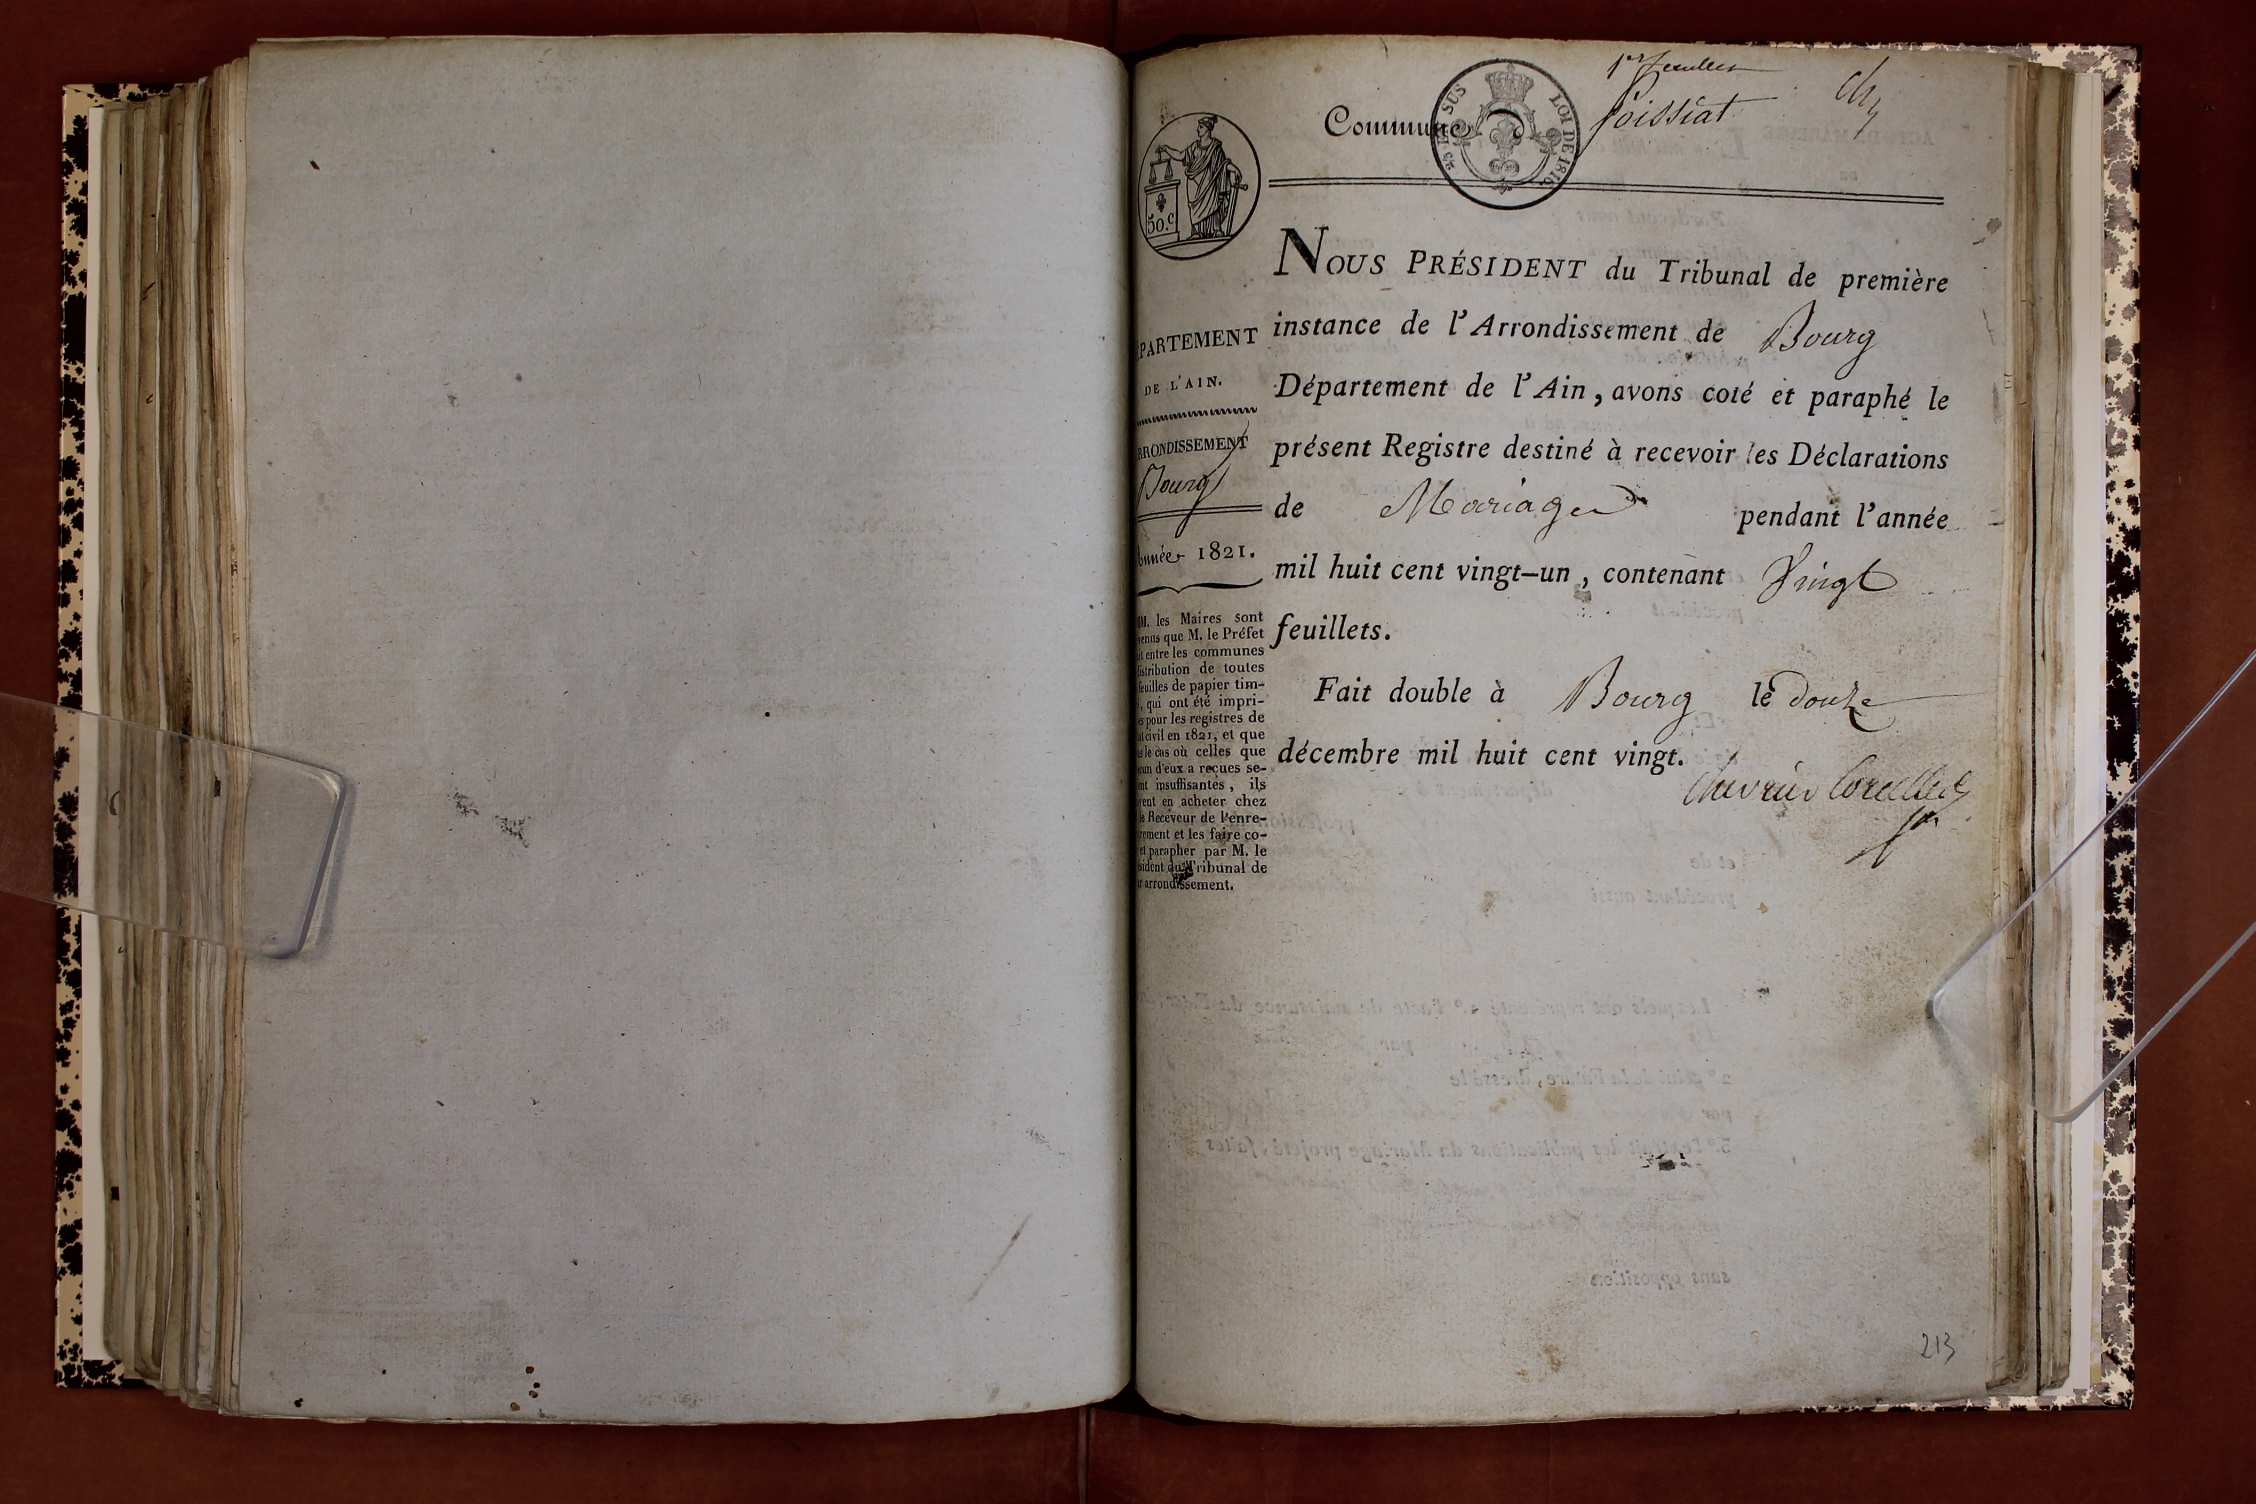 1er feuillet
Commune de Foissiat
EN SUS LOI DE 1816.
50.c
NOUS PRÉSIDENT du Tribunal de première
instance de l'Arrondissement de Bourg
Département de l'Ain, avons coté et paraphé le
présent Registre destiné à recevoir les Déclarations
de Mariages pendant l'année
mil huit cent vingt-un, contenant Vingt
feuillets.
Fait double à Bourg le douze
décembre mil huit cent vingt.
PARTEMENT
DE L'AIN.
RRONDISSEMENT
Bourg
nnée 1821.
M. les Maires sont
venus que M. le Préfet
it entre les communes
distribution de toutes
feuilles de papier tim-
, qui ont été impri-
s pour les registres de
at civil en 1821, et que
s le cas où celles que
cun d'eux a reçues se-
nt insuffisantes, ils
vent en acheter chez
le Receveur de l'enre-
rement et les faire co-
et parapher par M. le
sident du Tribunal de
r arrondissement.
213